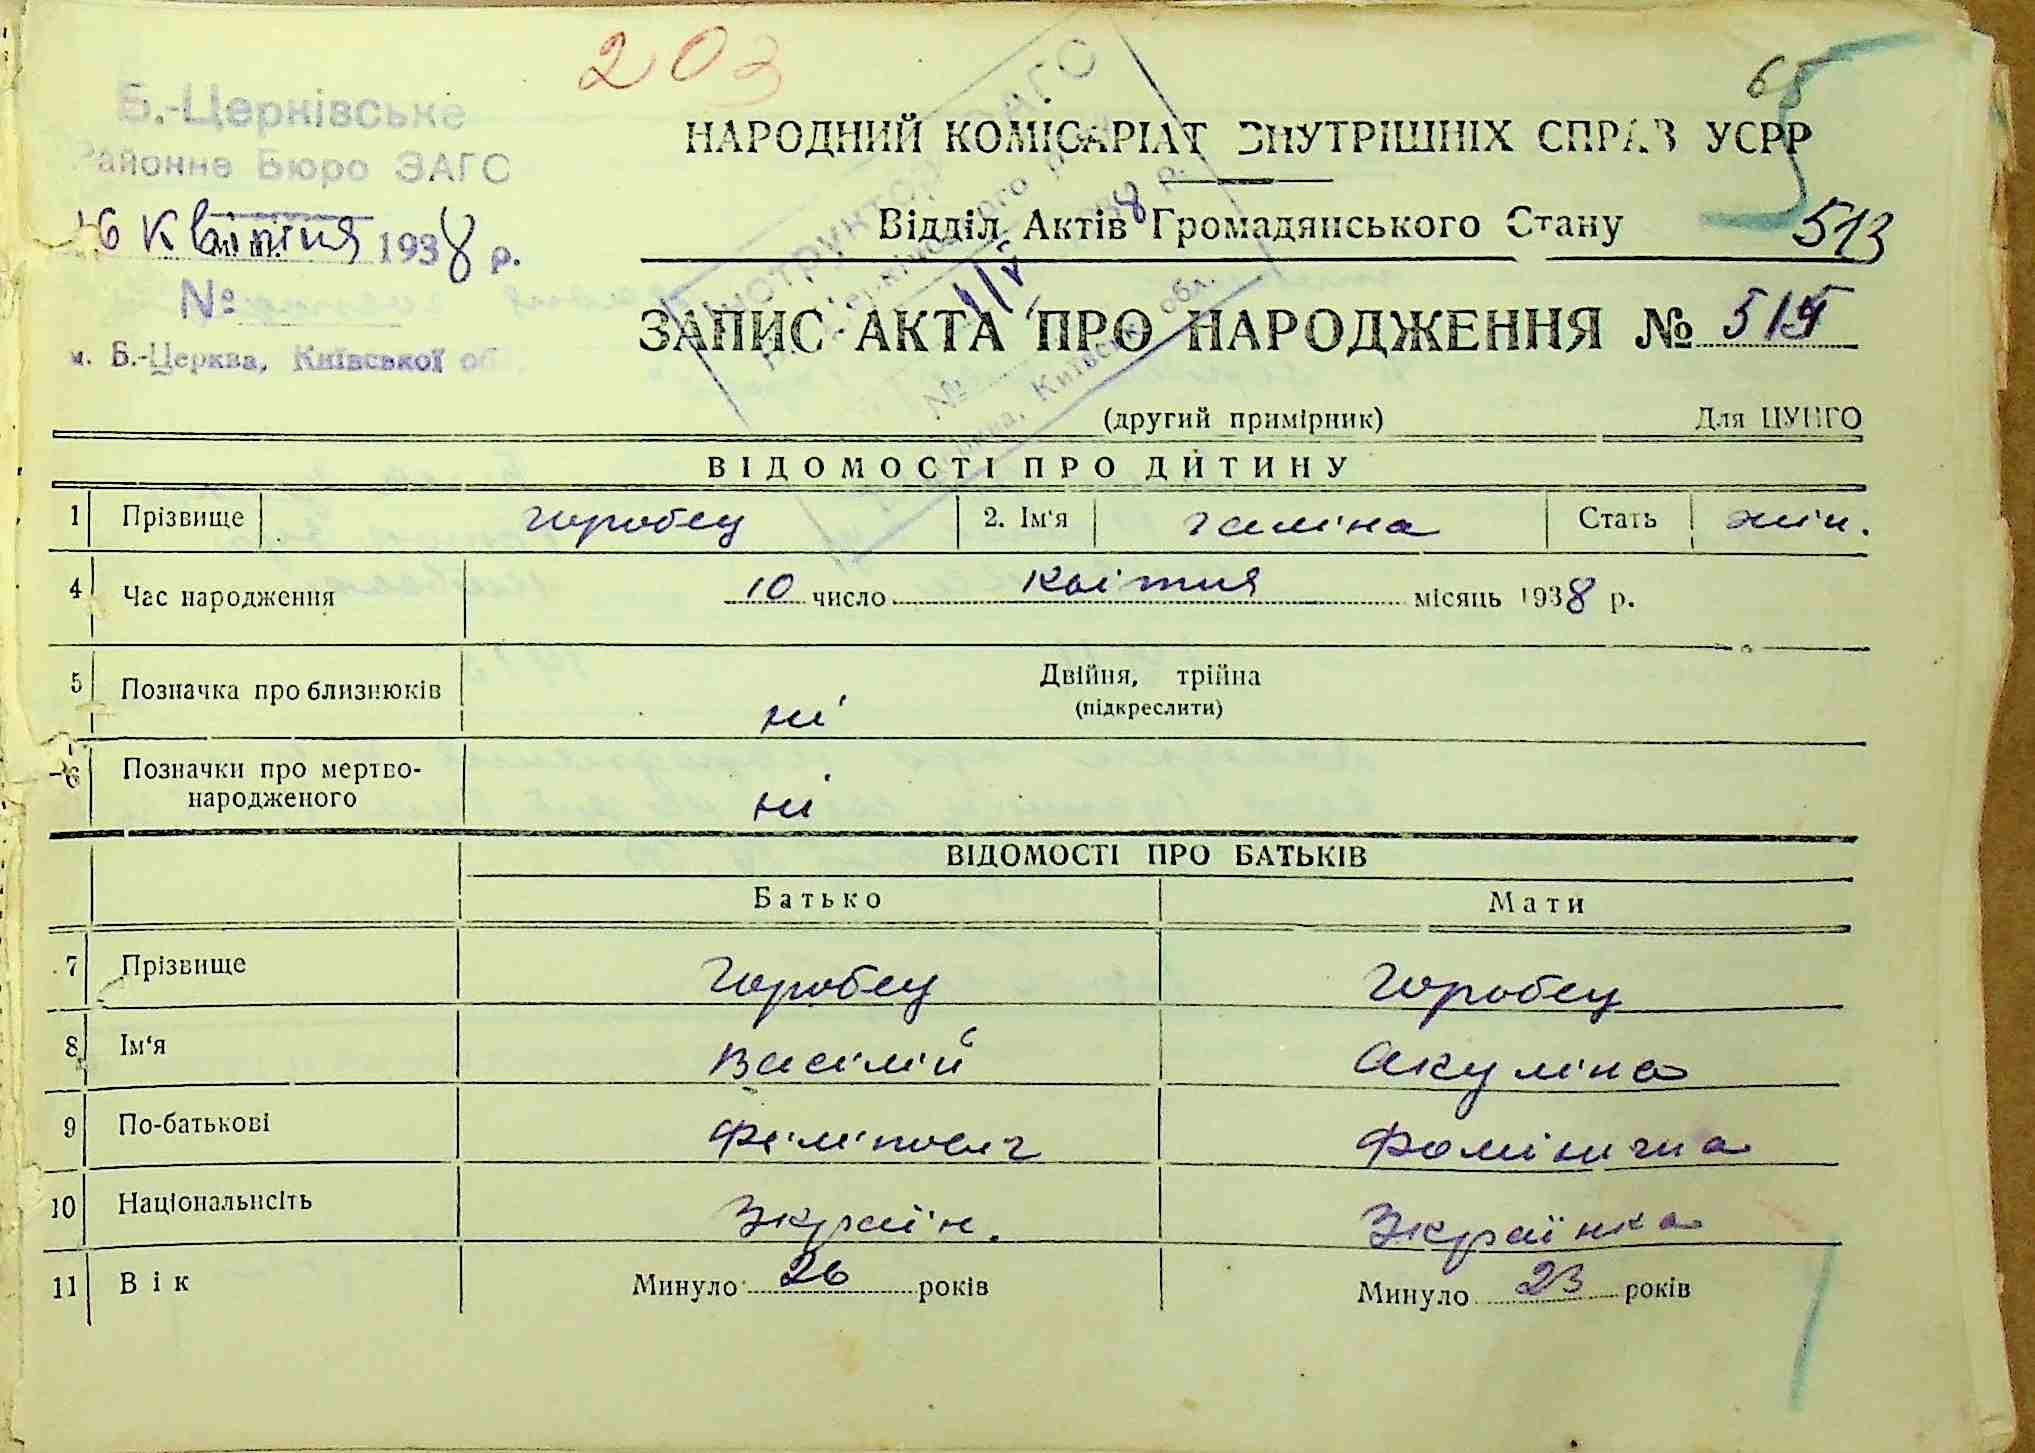 203
65
Б.-Церківське
Районне Бюро ЗАГС
16 Квітня 1938 р.
№
м. Б.-Церква, Київської обл.
НАРОДНИЙ КОМІСАРІАТ ВНУТРІШНІХ СПРАВ УСРР
Відділ Актів Громадянського Стану
513
ЗАПИС АКТА ПРО НАРОДЖЕННЯ № 515
(другий примірник) Для ЦУНГО
ВІДОМОСТІ ПРО ДИТИНУ
1 Прізвище Горобец 2. Ім'я Галіна Стать жін.
4 Час народження 10 число Квітня місяць 1938 р.
5 Позначка про близнюків ні Двійня, трійна
(підкреслити)
6 Позначки про мертво-
народженого ні
ВІДОМОСТІ ПРО БАТЬКІВ
Батько Мати
7 Прізвище Горобец Горобец
8 Ім'я Васілій Акуліна
9 По-батькові Філіпович Фомінична
10 Національність Україн. Українка
11 Вік Минуло 26 років Минуло 23 років